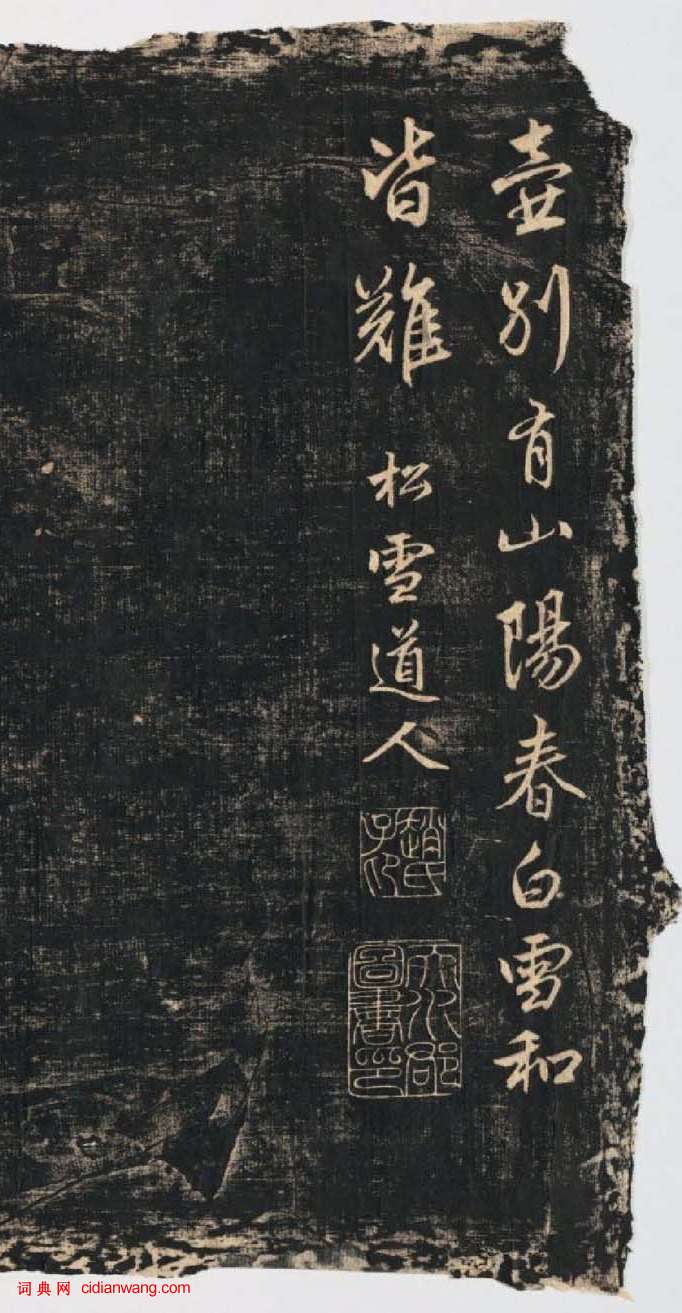 壺別有山陽春白雪和
皆難 松雪道人
趙氏子昂
天水郡圖書印
词典网 cidianwang.com